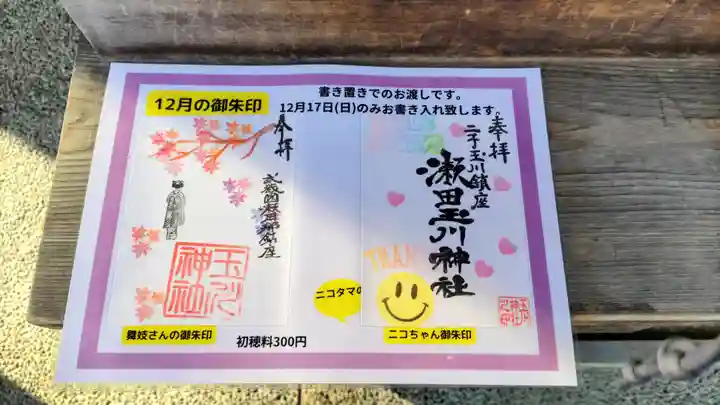 12月の御朱印
書き置きでのお渡しです。
12月17日(日)のみお書き入れ致します。
奉拝
玉川
神社
舞妓さんの御朱印
初穂料300円
ニコタマの
奉拝
二子玉川鎮座
瀬田玉川神社
THAN
ニコちゃん御朱印